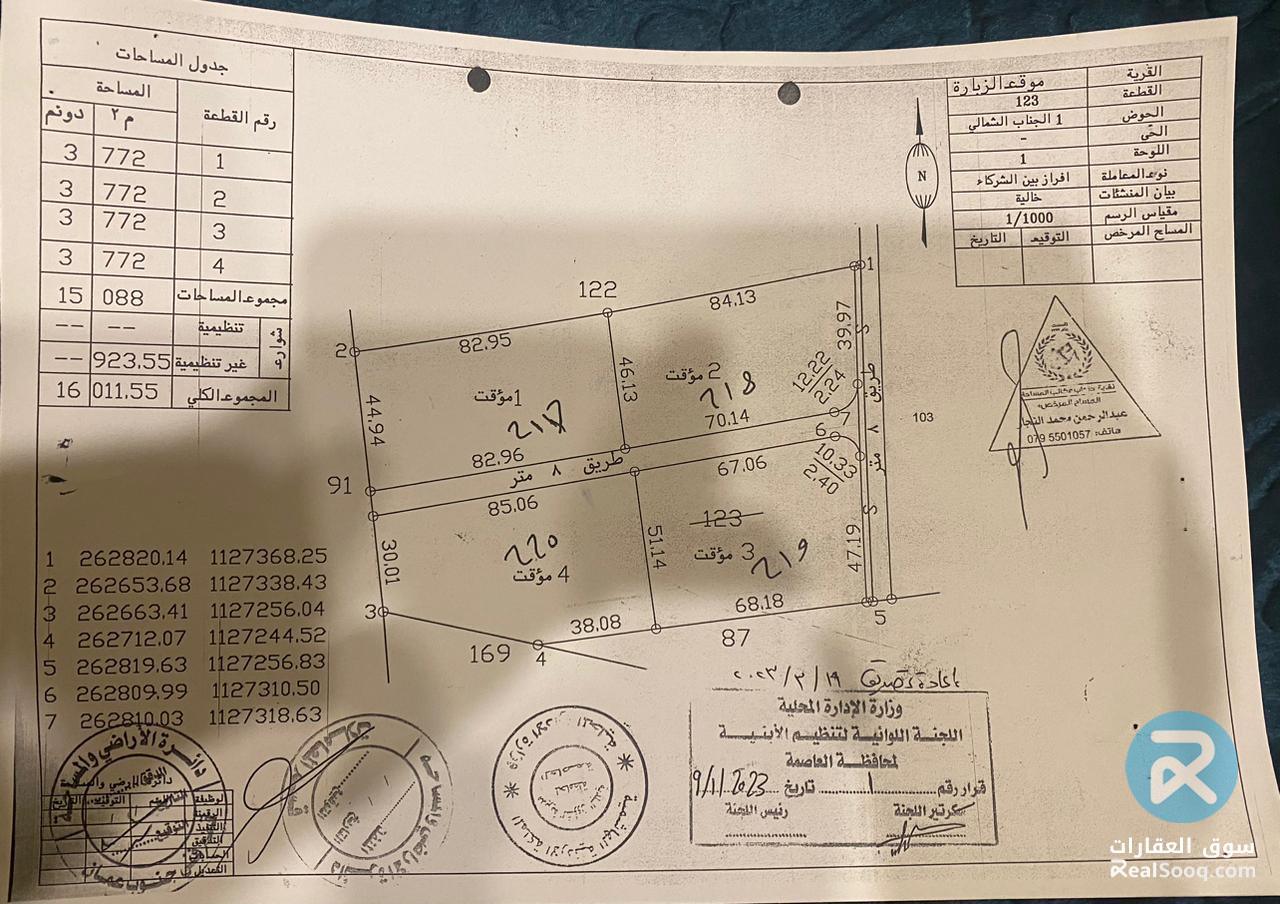 جدول المساحات
رقم القطعة
المساحة
م٢
دونم
1 772 3
2 772 3
3 772 3
4 772 3
مجموع المساحات 088 15
شوارع
تنظيمية -- --
غير تنظيمية 923.55 --
المجموع الكلي 011.55 16
القرية موقع الزبارة
القطعة 123
الحوض 1 الجناب الشمالي
الحي -
اللوحة 1
نوع المعاملة افراز بين الشركاء
بيان المنشئات خالية
مقياس الرسم 1/1000
المساح المرخص التوقيع التاريخ
N
122
84.13
1
2
82.95
39.97
S
46.13
مؤقت 2
218
12.22
2.24
طريق ٨ متر
103
مؤقت 1
217
44.94
70.14
7
6
82.96
طريق ٨ متر
67.06
10.33
2.40
91
85.06
S
123
220
مؤقت 4
51.14
مؤقت 3
219
47.19
30.01
3
68.18
38.08
5
87
169
4
المساح المرخص
عبدالرحمن محمد النجار
هاتف: 079 5501057
1 262820.14 1127368.25
2 262653.68 1127338.43
3 262663.41 1127256.04
4 262712.07 1127244.52
5 262819.63 1127256.83
6 262809.99 1127310.50
7 262810.03 1127318.63
اعادة تصديق ٢٠٢٣/٣/١٩
وزارة الإدارة المحلية
اللجنة اللوائية لتنظيم الأبنية
لمحافظة العاصمة
قرار رقم 1 تاريخ 9/1/2023
سكرتير اللجنة رئيس اللجنة
دائرة الأراضي والمساحة
المملكة الاردنية الهاشمية
سوق العقارات
RealSooq.com